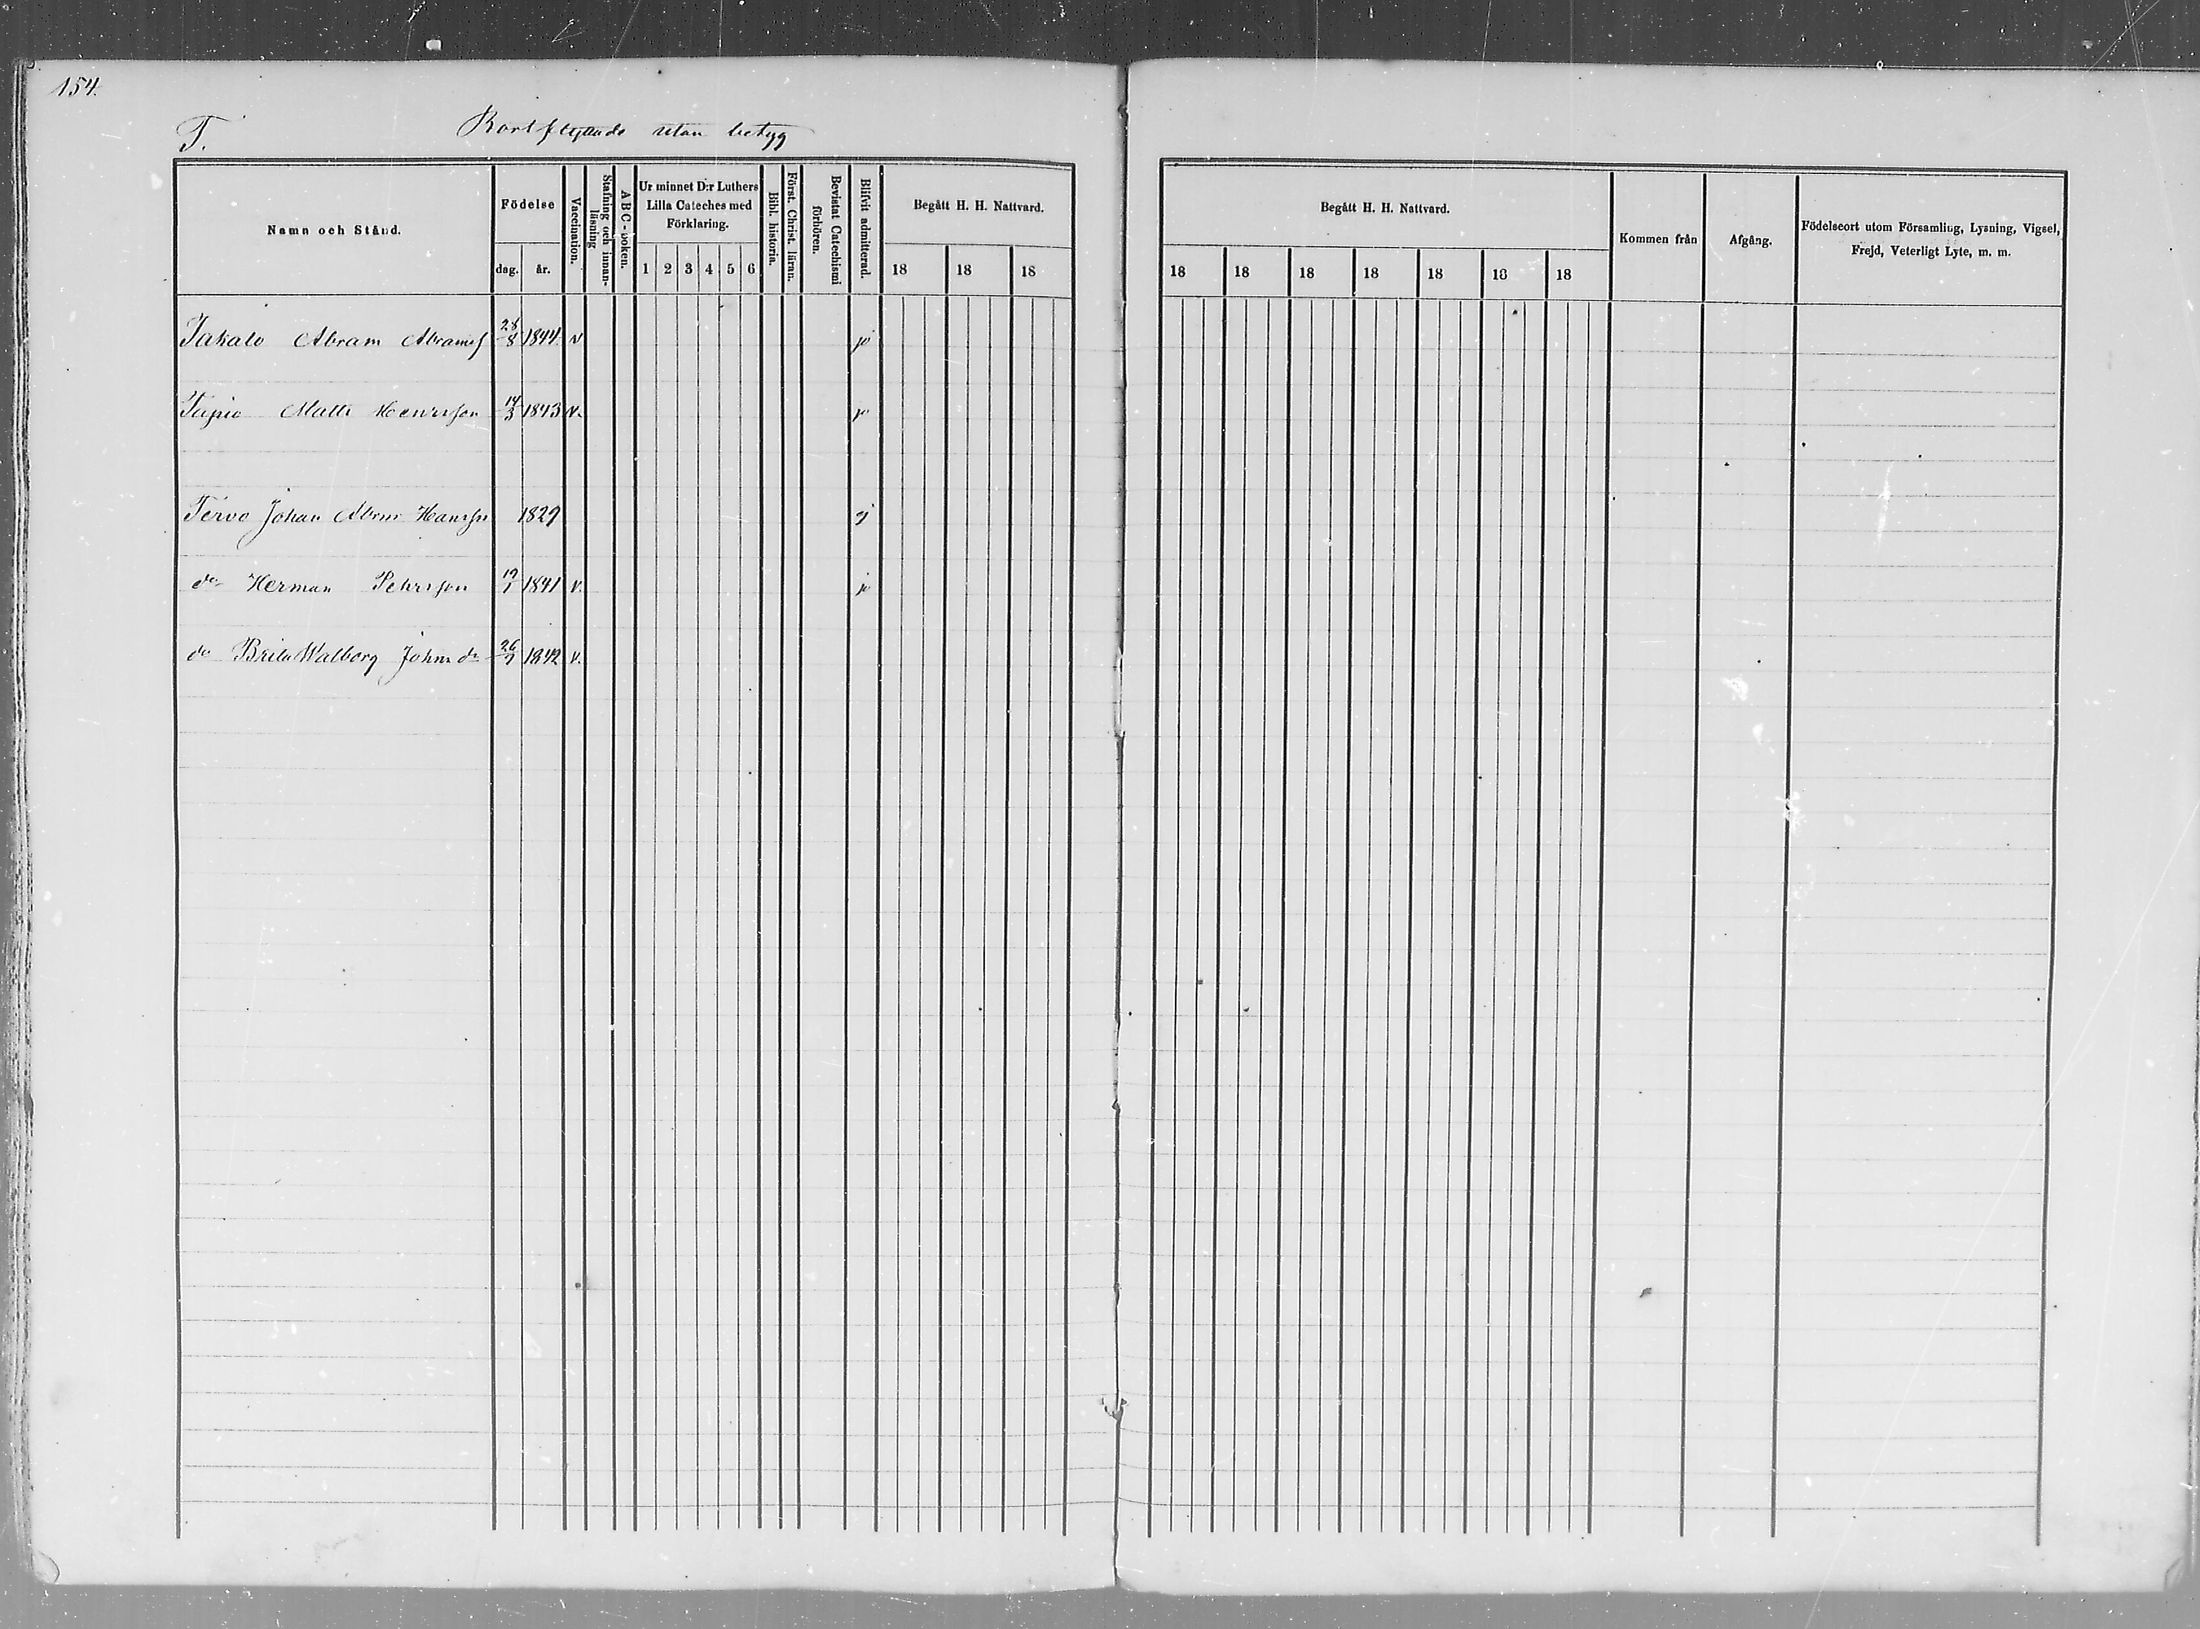 154.
T. Bortflyttade utan betyg
Namn och Stånd.
Födelse
dag. år.
Vaccination.
Stafning och innan-
läsning
ABC-boken.
Ur minnet D:r Luthers
Lilla Cateches med
Förklaring.
1 2 3 4 5 6
Bibl. historia.
Först. Christ. läran.
Bevistat Catechismi
förhören.
Blifvit admitterad.
Begått H. H. Nattvard.
18 18 18
Begått H. H. Nattvard.
18 18 18 18 18 18 18
Kommen från
Afgång.
Födelseort utom Församling, Lysning, Vigsel,
Frejd, Veterligt Lyte, m. m.
Takalo Abram Abramss 28/8 1844 v
Tapio Matts Henrisson 14/3 1843 v.
Tervo Johan Abrm Hansn 1829
do Herman Petersson 19/1 1841 v.
do Brita Walborg Johns dr 1842 v.